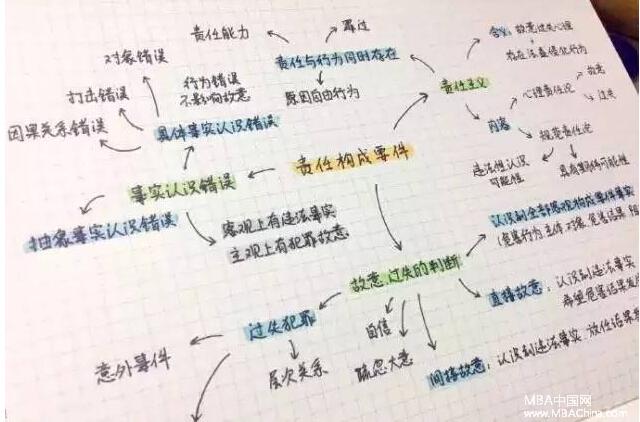 责任能力
罪过
含义：故意过失心理
对象错误
责任与行为同时存在
行为错误
不影响故意
责任主义
故意
打击错误
原因自由行为
心理责任论
过失
因果关系错误
具体事实认识错误
内容
规范责任论
责任构成要件
违法性认识
可能性
事实认识错误
客观上有违法事实
主观上有犯罪故意
抽象事实认识错误
认识到全部客观构成要件事实
故意、过失的判断
直接故意：认识到违法事实
希望危害结果发
过失犯罪
自信
意外事件
层次关系
疏忽大意
间接故意：认识到违法事实，放任结果
MBA中国网
www.MBAChina.com